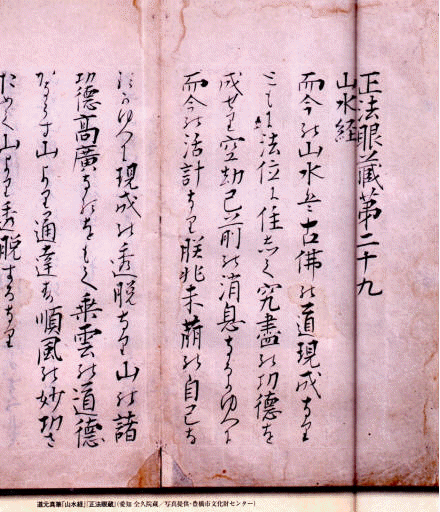 正法眼蔵第二十九
山水経
而今の山水は古佛の道現成なり
ともに法位に住して究盡の功徳を
成せり空劫已前の消息なるかゆへに
而今の活計なり朕兆未萌の自己な
るかゆへに現成の透脱なり山の諸
功徳高廣なるをもて乗雲の道徳
かならす山より通達す順風の妙功さ
ためて山より透脱するなり
道元真筆「山水経」『正法眼蔵』(愛知 全久院蔵/写真提供・豊橋市文化財センター)